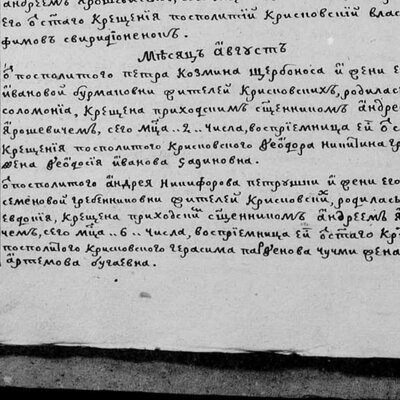 андреемъ Ярошевичемъ,
его ѿ с͠таго Крещенія посполитій Крисновскій влас
фимовъ свиридіоненокъ.
Мѣсяцъ а҆вгустъ
ѿ посполитого петра Козмина щербоноса и҆ жени е
и҆вановой бурмановни жителей Крисновскихъ, родилас
соломонія, Крещена приходскимъ с͠щенникомъ а҆ндре
Ярошевичемъ, сего мц͠а ..2.. числа, воспріемница ей ѿ с͠
Крещенія посполитого Крисновского ѳео҆дора никитина
жена ѳео҆досія и҆ванова
ѿ посполитого а҆ндрея Никифорова петрушки и҆ жени его
семеновой гребенниковни жителей Крисновскихъ, родилась
евдокія, Крещена приходскимъ с͠щенникомъ а҆ндреемъ Я
чемъ, сего мц͠а ..6.. числа, воспріемница ей ѿ с͠таго Кр
посполитого Крисновского герасима парѳенова чучми жена
а҆ртемова бугаевна.